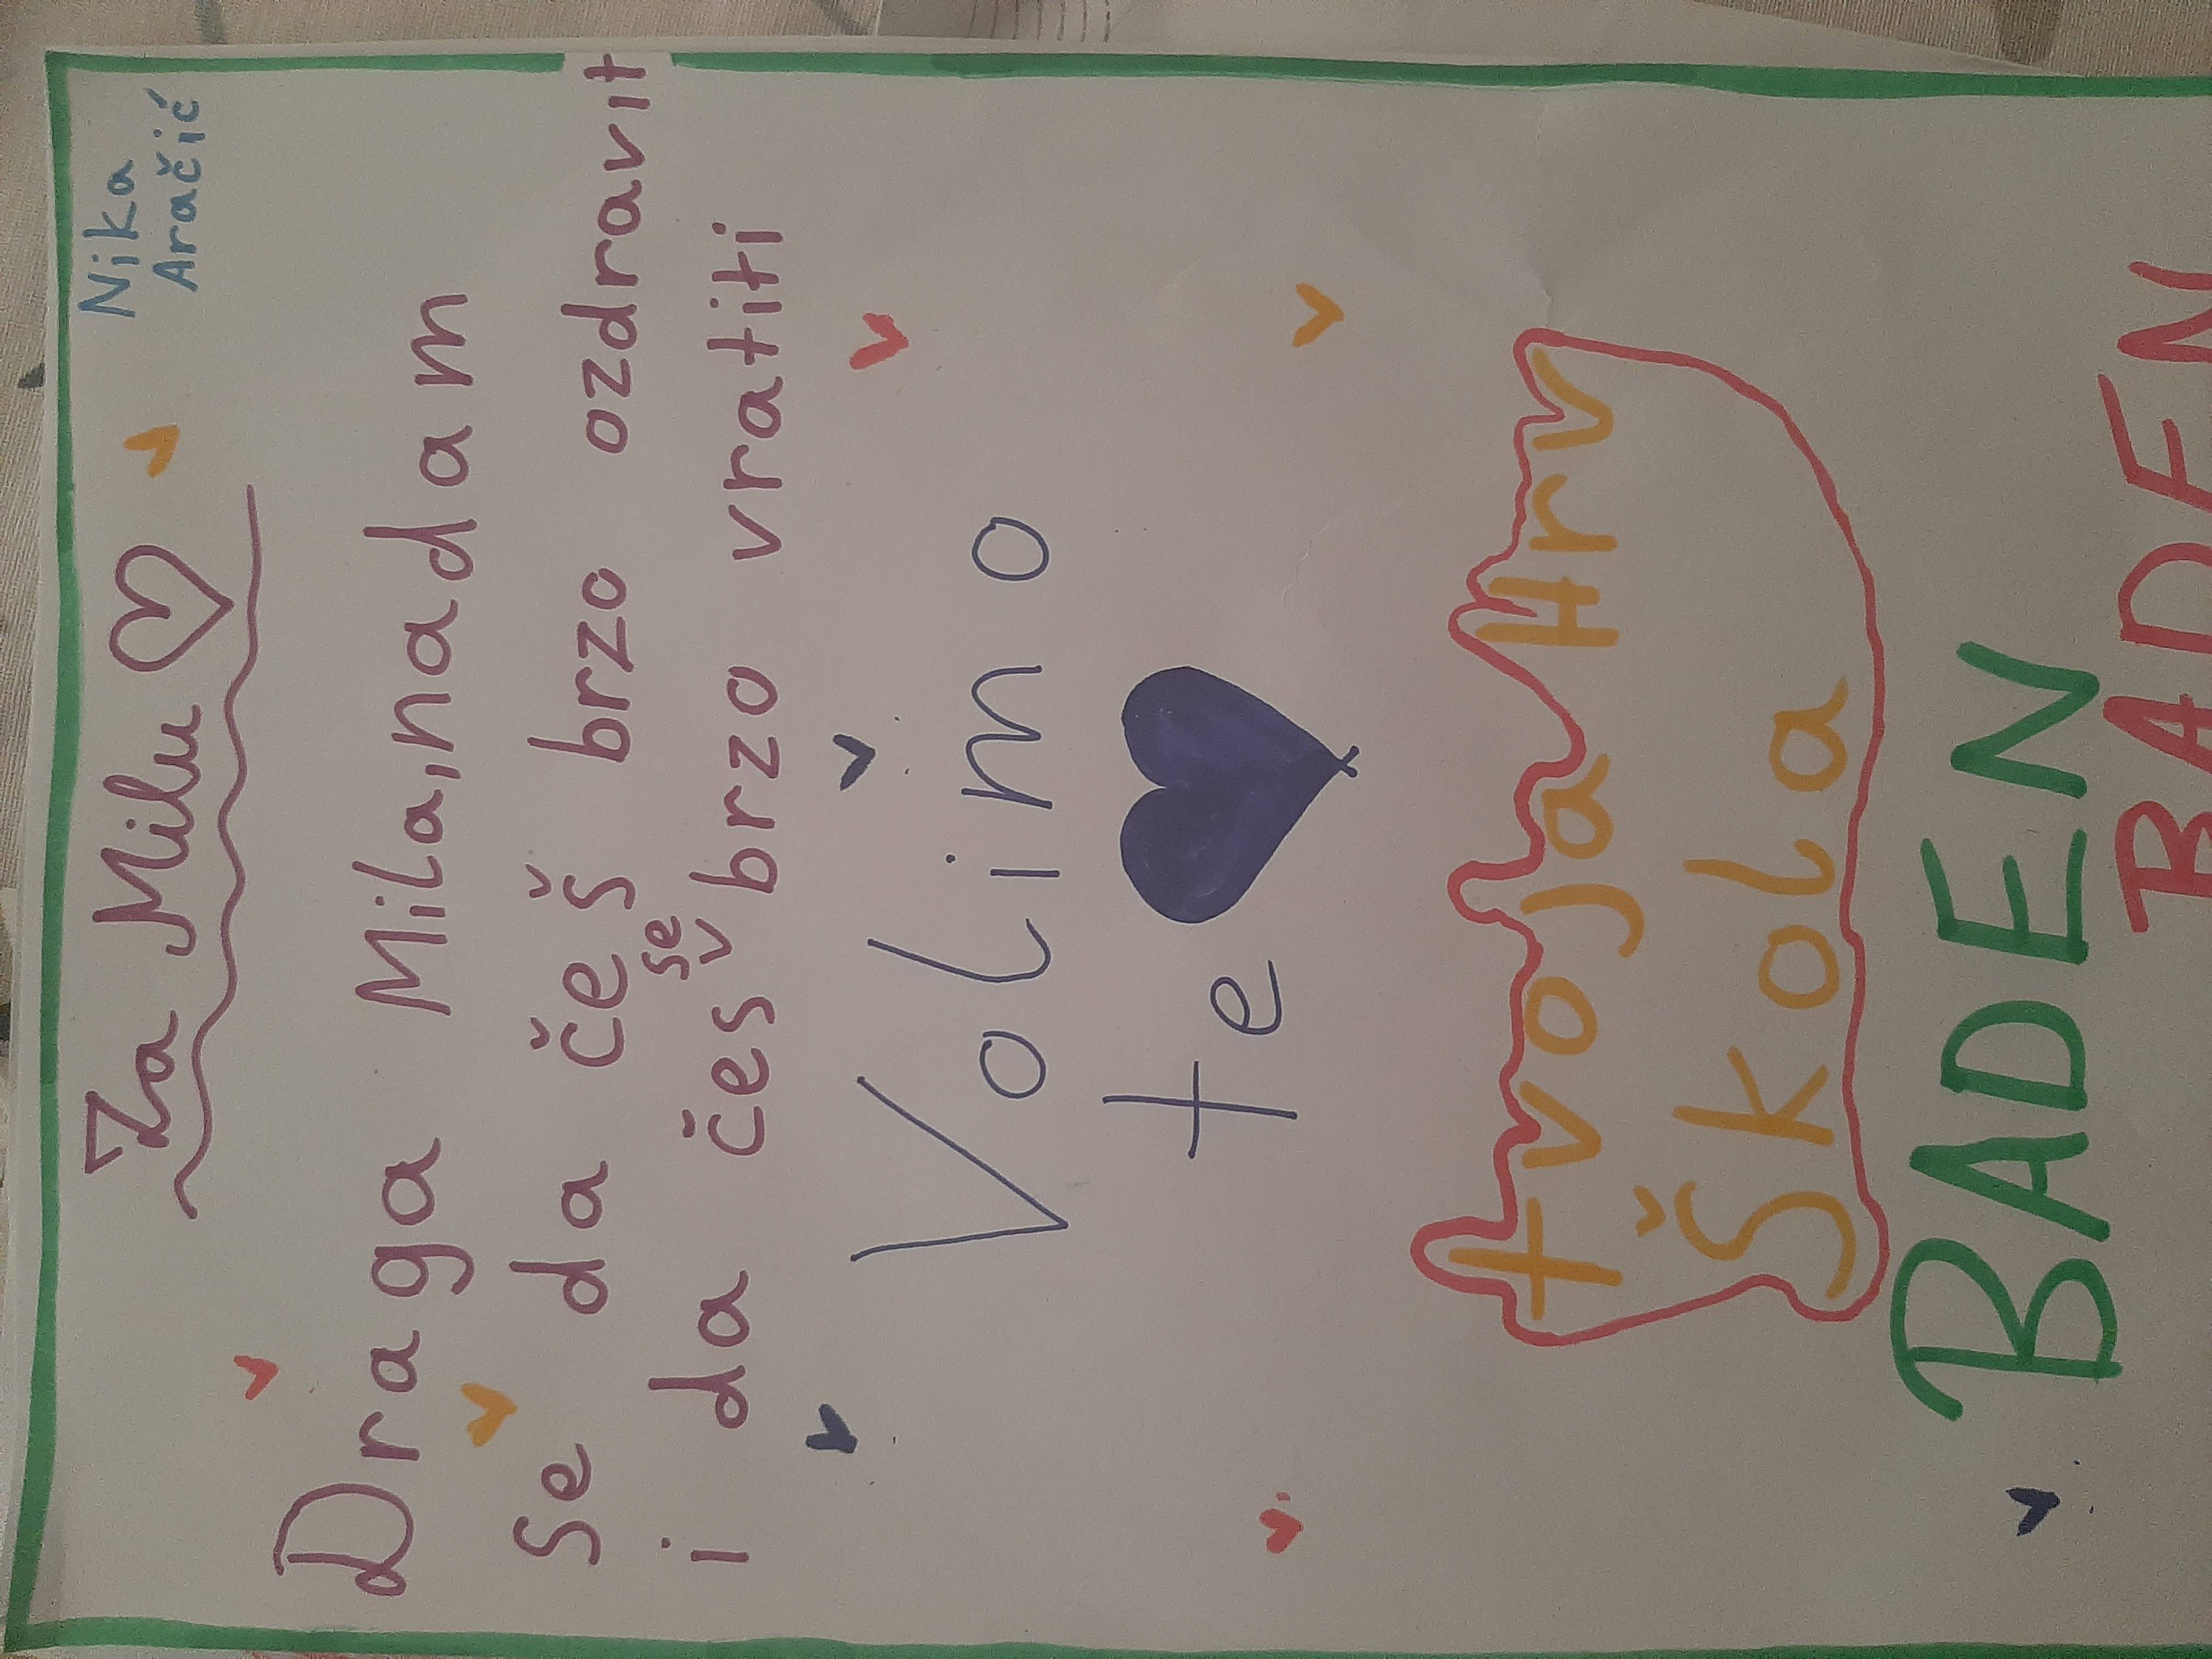 Nika
Aračić
Za Milu
Draga Mila, nadam
se da češ brzo ozdravit
i da čes se brzo vratiti
Volimo
te
tvoja Hrv
Škola
BADEN
BADEN